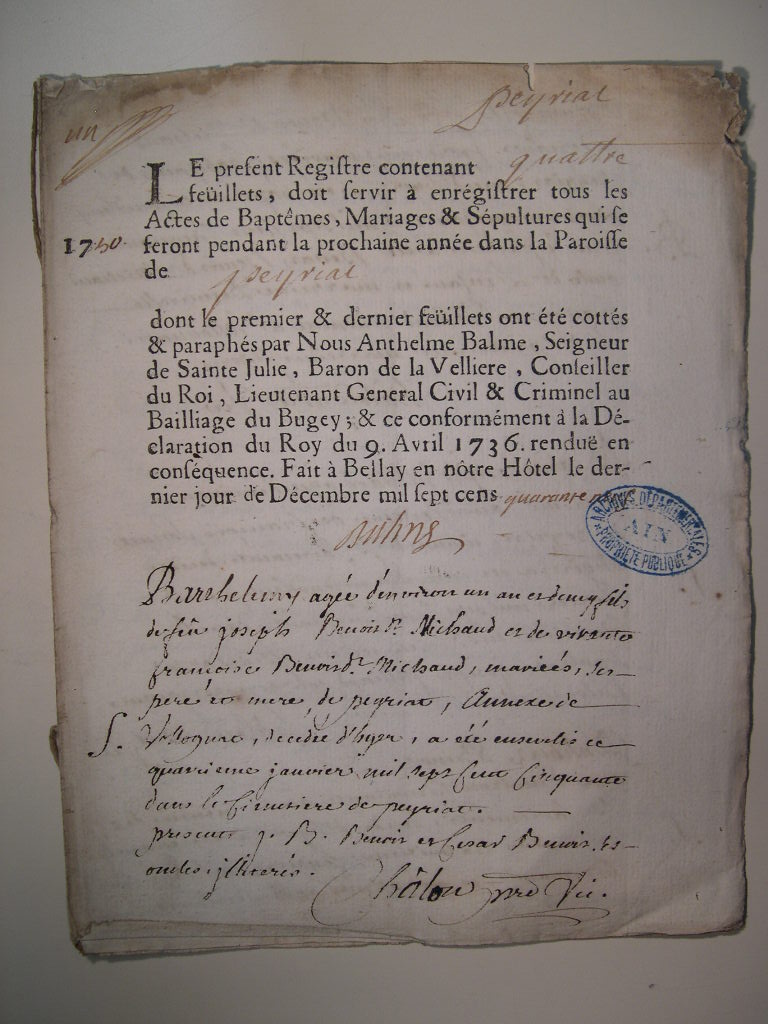 peyriat
un
LE preſent Regiſtre contenant quattre
feüillets, doit ſervir à enrégiſtrer tous les
Actes de Baptêmes, Mariages & Sépultures qui ſe
1750. feront pendant la prochaine année dans la Paroiſſe
de peyriat
dont le premier & dernier feüillets ont été cottés
& paraphés par Nous Anthelme Balme, Seigneur
de Sainte Julie, Baron de la Velliere, Conſeiller
du Roi, Lieutenant General Civil & Criminel au
Bailliage du Bugey; & ce conformément à la Dé-
claration du Roy du 9. Avril 1736. renduë en
conſéquence. Fait à Bellay en nôtre Hôtel le der-
nier jour de Décembre mil ſept cens quarante
ARCHIVES DÉPARTEMENTALES
AIN
PROPRIÉTÉ PUBLIQUE
Barthelemy agée d'environ un an et demy fils
de feu joseph Benoist dt Michaud et de vivante
françoise Benoist dt Michaud, mariées, ses
pere et mere, de peyriat, Annexe de
S. Vollognat, decedé d'hyer, a été enseveli ce
quatrieme janvier mil sept cent cinquante
dans le cimetiere de peyriat.
present J. B. Benoit et Cesar Benoit, ses
oncles illiterés.
Châlon pre Vic.